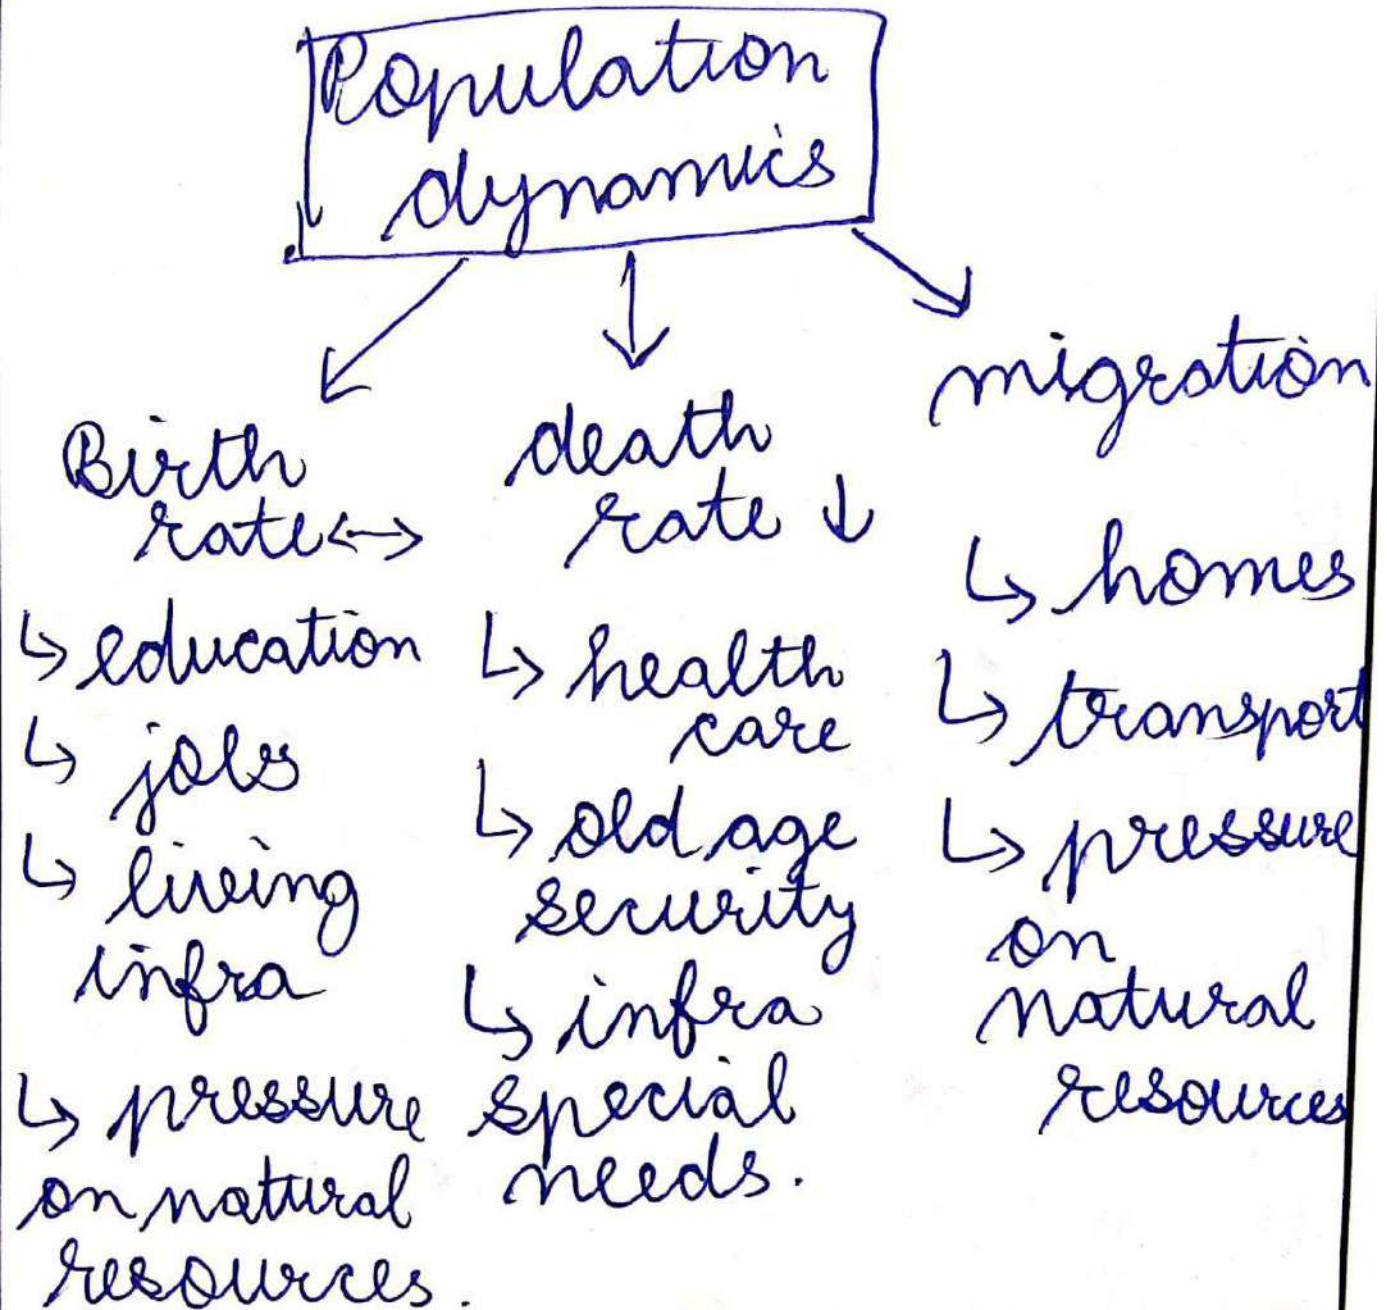 Population
dynamics
Birth
rate ↔
↳ education
↳ jobs
↳ living
infra
↳ pressure
on natural
resources.
death
rate ↓
↳ health
care
↳ old age
security
↳ infra
special
needs.
migration
↳ homes
↳ transport
↳ pressure
on
natural
resources